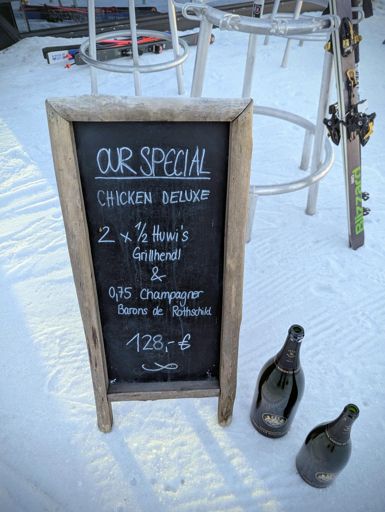 OUR SPECIAL
CHICKEN DELUXE
2 x ½ Huwi's
Grillhendl
&
0,75 Champagner
Barons de Rothschild
128,- €
Blizzard